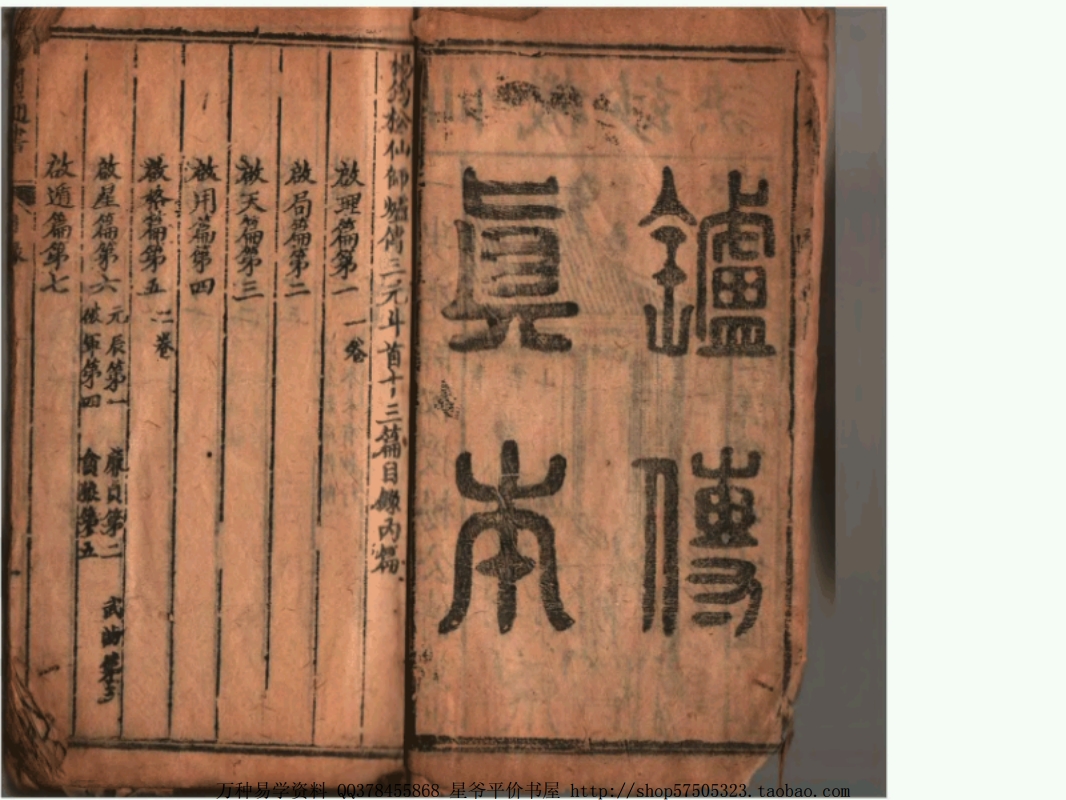 鑪傳
眞本
楊筠松仙師爐傳三元斗首十三篇目錄內篇
啟理篇第一 一卷
啟局篇第二
啟天篇第三
啟用篇第四
啟格篇第五 二卷
啟星篇第六 元辰第一 廉貞第二 武曲第三
第四 貪狼第五
啟遁篇第七
万种易学资料 QQ378455868 星爷平价书屋 http://shop57505323.taobao.com